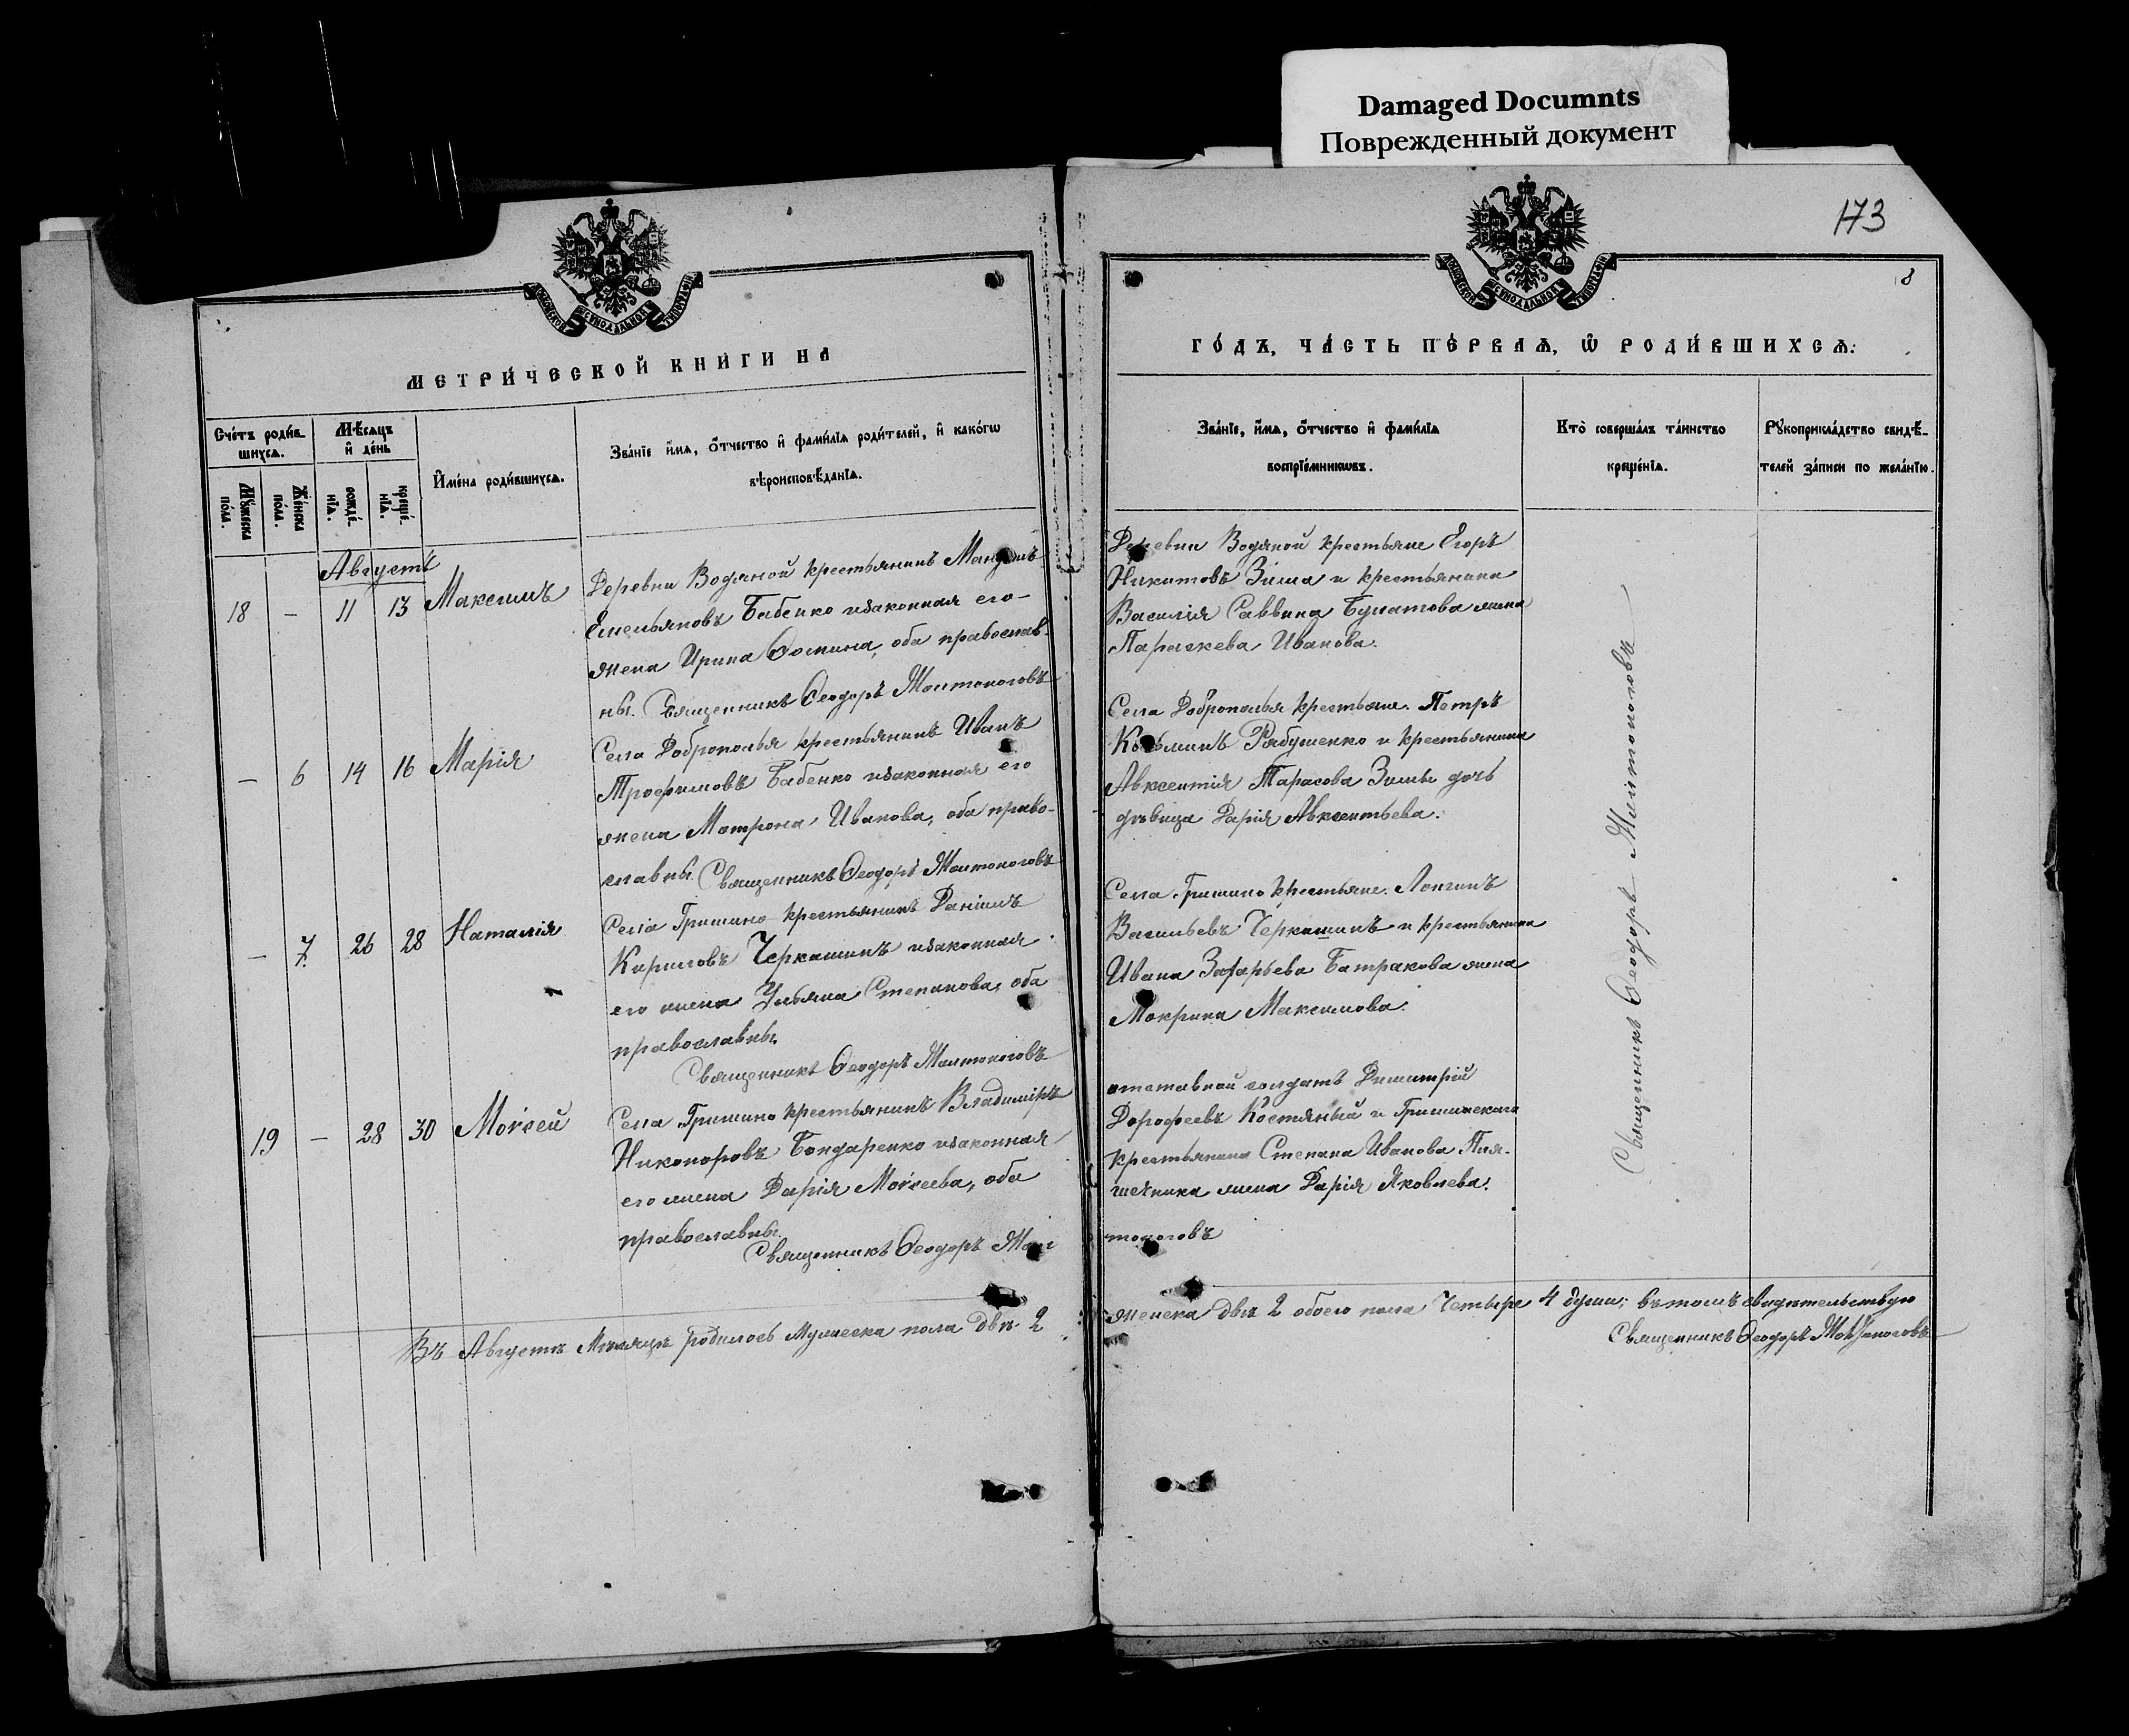 Damaged Documnts
Поврежденный документ
173
8
МОСКОВСКОЙ СѴНОДАЛЬНОЙ ТИПОГРАФІИ
МОСКОВСКОЙ СѴНОДАЛЬНОЙ ТИПОГРАФІИ
МЕТРИ́ЧЕСКОЙ КНИ́ГИ НА
ГО́ДЪ, ЧА́СТЬ ПЕ́РВАѦ, Ѡ РОДИ́ВШИХСѦ:
Сче́тъ роди́в-
шихсѧ.
Мѣ́сѧцъ
и҆ де́нь
Мꙋ́жеска
по́ла.
Же́нска
по́ла.
рожде́-
нїѧ.
креще́-
нїѧ.
И҆мена̀ роди́вшихсѧ.
Зва́нїе и҆́мѧ, ѻ҆́тчество и҆ фамı́лїѧ роди́телей, и҆ како́гѡ
вѣроисповѣ́данїѧ.
Зва́нїе, и҆́мѧ, ѻ҆́тчество и҆ фамı́лїѧ
воспрїе́мникѡвъ.
Кто̀ соверша́лъ та́инство
креще́нїѧ.
Рꙋкоприкла́дство свидѣ́-
телей за́писи по жела́нїю.
Августъ
18 — 11 13 Максимъ
Деревни Водяной крестьянинъ
Емельяновъ Бабенко изаконная его
жена Ирина Фомина, оба православ-
ны. Священникъ Ѳеодоръ Молтоноговъ
Деревни Водяной крестьяне Егоръ
Никитовъ Зима и крестьянина
Василія Саввина Булатова жена
Параскева Иванова.
— 6 14 16 Марія
Села Доброполья крестьянинъ Иванъ
Трофимовъ Бабенко изаконная его
жена Матрона Иванова, оба право-
славны. Священникъ Ѳеодоръ Молтоноговъ
Села Доброполья крестьяне. Петръ
Козьминъ Рябушенко и крестьянина
Авксентія Тарасова Зимы дочь
дѣвица Дарія Авксентьева.
— 7. 26 28 Наталія
Села Гришино крестьянинъ Даніилъ
Кириловъ Черкашинъ изаконная
его жена Ульяна Степанова, оба
православны.
Священникъ Ѳеодоръ Молтоноговъ
Села Гришино крестьяне. Лонгинъ
Васильевъ Черкашинъ и крестьянина
Ивана Захарьева Батракова жена
Мокрина Максимова.
19 — 28 30 Моѵсей
Села Гришино крестьянинъ Владиміръ
Никоноровъ Бондаренко изаконная
его жена Дарія Моѵсеева, оба
православны.
Священникъ Ѳеодоръ Мол
тоноговъ
отставной солдатъ Димитрій
Дорофеевъ Костяный и Гришинскаго
крестьянина Степана Иванова Пля-
жена Дарія Яковлева.
Священникъ Ѳеодоръ Молтоноговъ
Въ Августѣ Мѣсяцѣ родилось Мужеска пола два 2
женска двѣ 2 обоего пола Четыре 4 души; въ томъ свидѣтельствую
Священникъ Ѳеодоръ Молтоноговъ